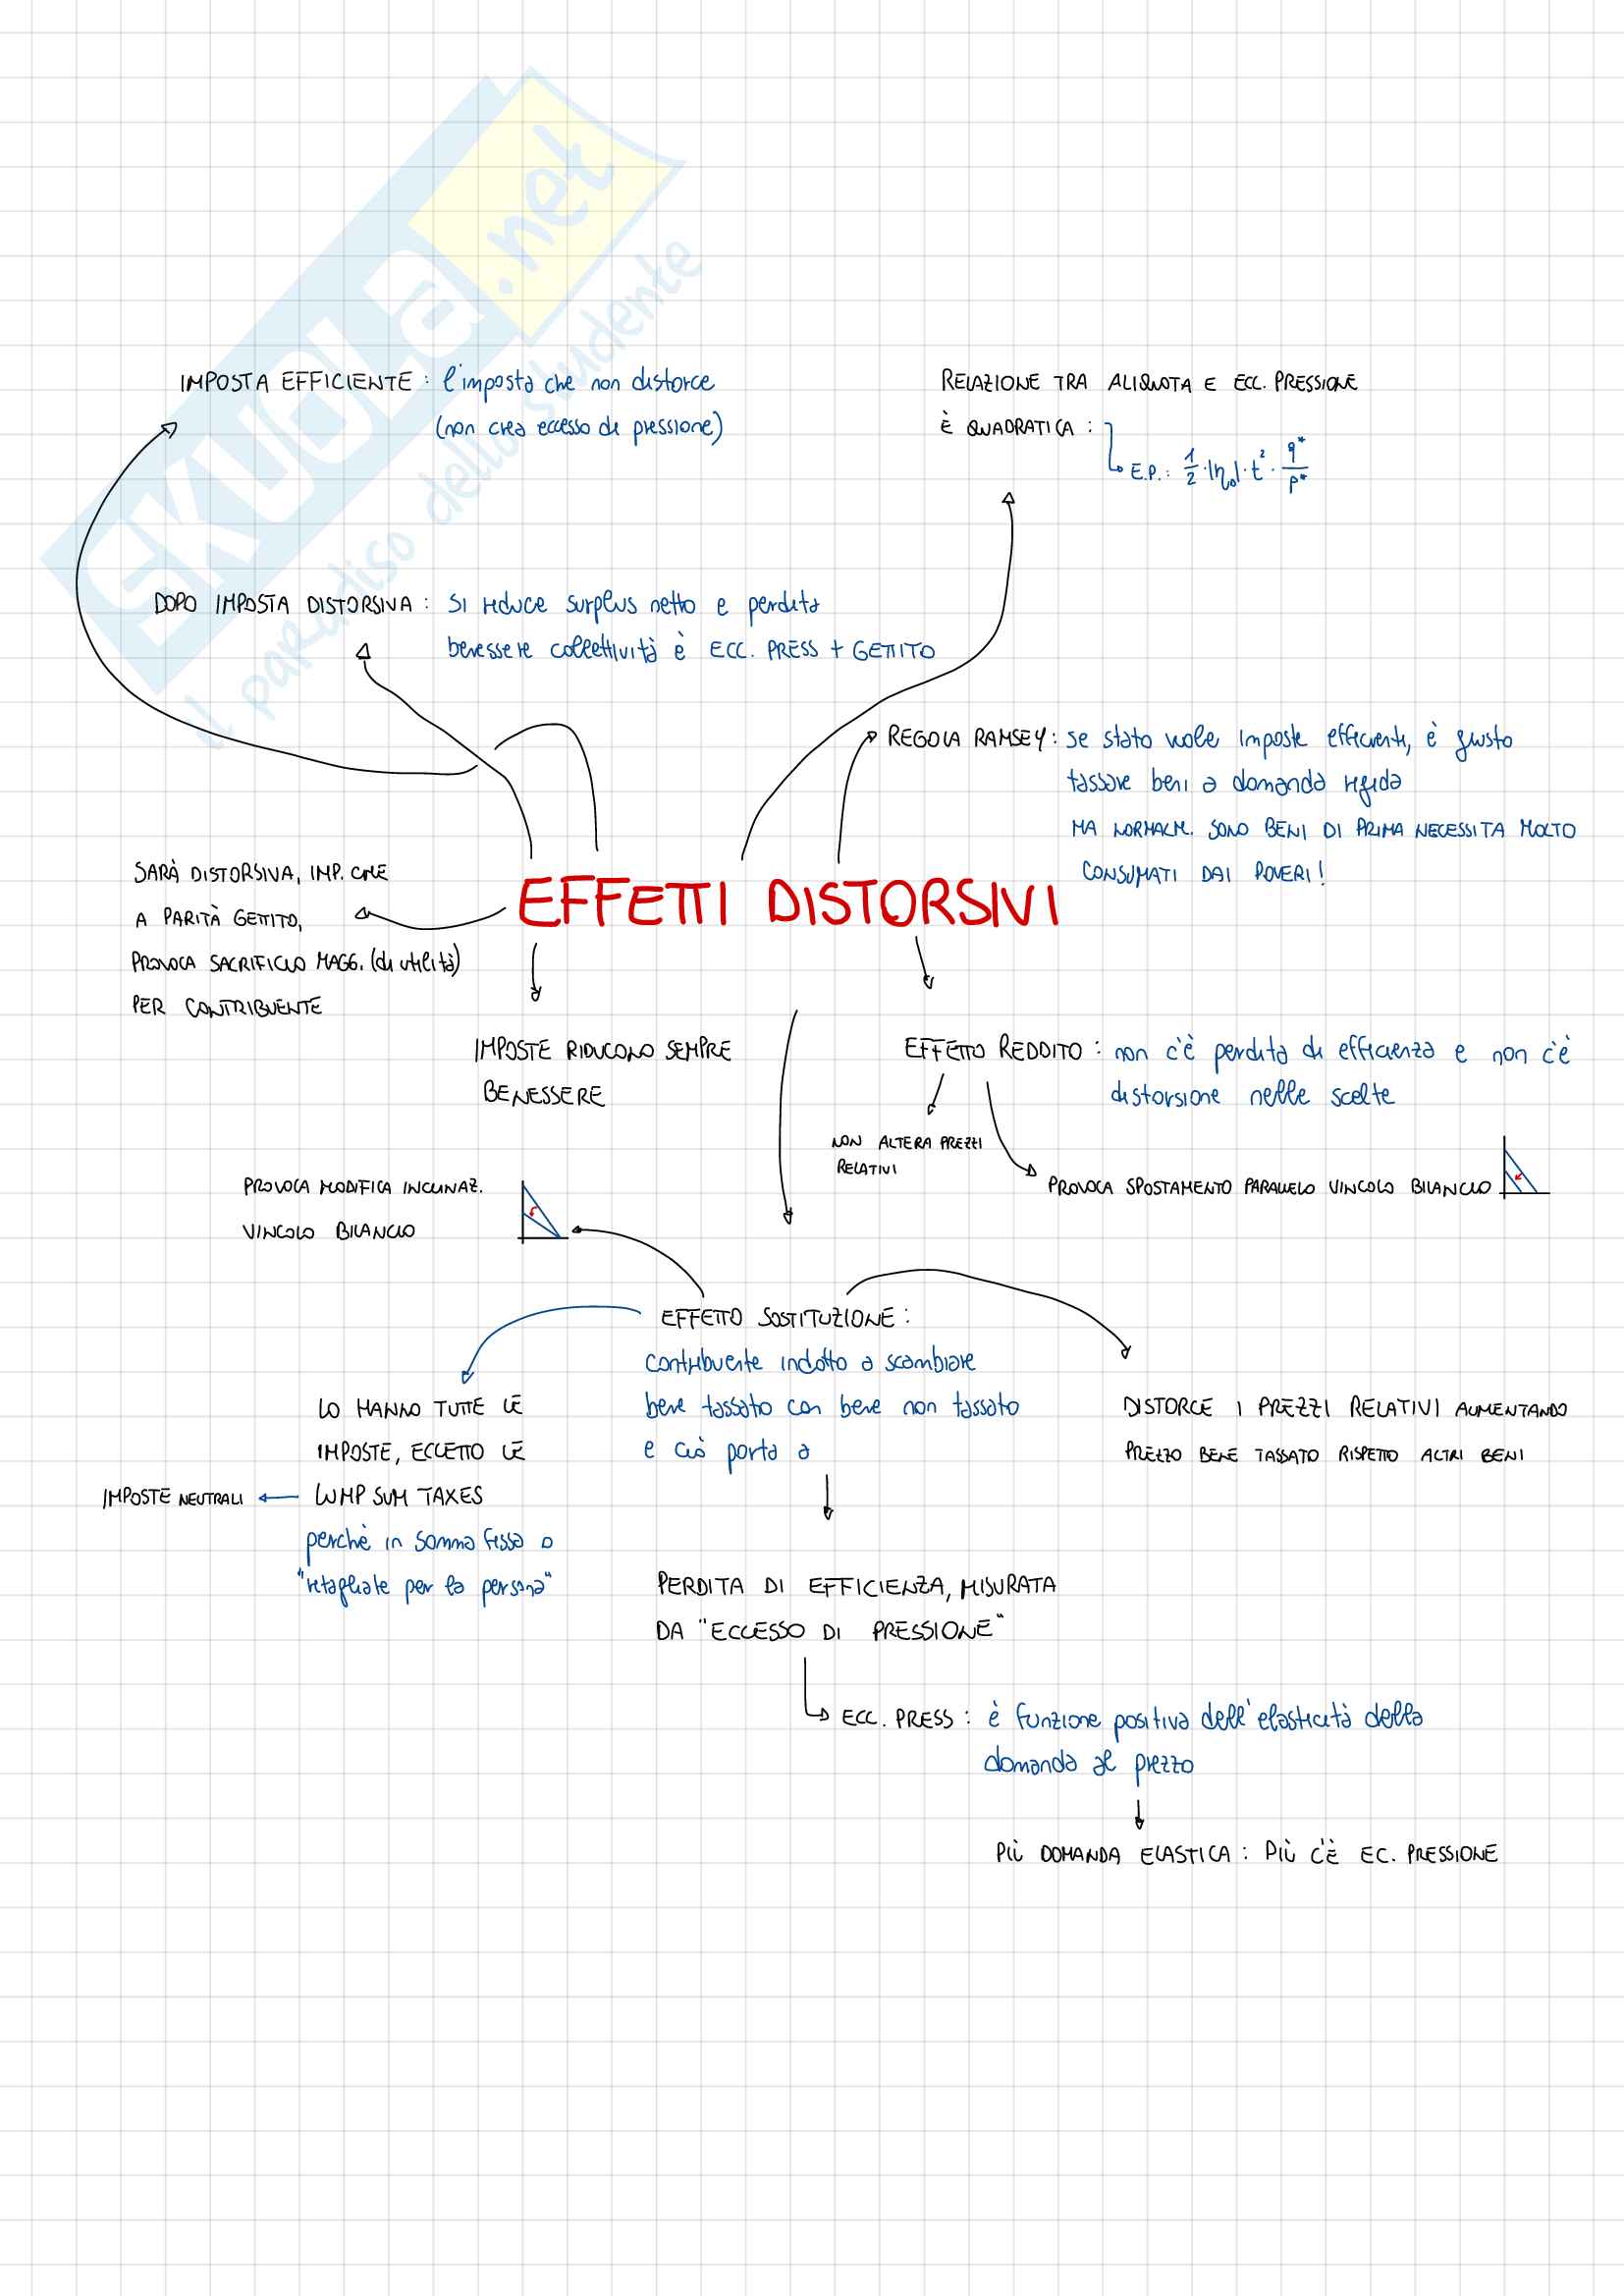 SKUOLA.net
il paradiso dello studente
IMPOSTA EFFICIENTE : l'imposta che non distorce
(non crea eccesso di pressione)
RELAZIONE TRA ALIQUOTA E ECC. PRESSIONE
È QUADRATICA :
E.P.: 1/2 · |η₀| · t² · q*/p*
DOPO IMPOSTA DISTORSIVA : SI riduce surplus netto e perdita
benessere collettività è ECC. PRESS + GETTITO
REGOLA RAMSEY : se stato vuole imposte efficienti, è giusto
tassare beni a domanda rigida
MA NORMALM. SONO BENI DI PRIMA NECESSITA MOLTO
CONSUMATI DAI POVERI !
SARÀ DISTORSIVA, IMP. CHE
A PARITÀ GETTITO,
PROVOCA SACRIFICIO MAGG. (di utilità)
PER CONTRIBUENTE
EFFETTI DISTORSIVI
IMPOSTE RIDUCONO SEMPRE
BENESSERE
EFFETTO REDDITO : non c'è perdita di efficienza e non c'è
distorsione nelle scelte
NON ALTERA PREZZI
RELATIVI
PROVOCA SPOSTAMENTO PARALLELO VINCOLO BILANCIO
PROVOCA MODIFICA INCLINAZ.
VINCOLO BILANCIO
EFFETTO SOSTITUZIONE :
contribuente indotto a scambiare
bene tassato con bene non tassato
e ciò porta a
LO HANNO TUTTE LE
IMPOSTE, ECCETTO LE
LUMP SUM TAXES
IMPOSTE NEUTRALI
perchè in somma fissa o
"ritagliate per la persona"
DISTORCE I PREZZI RELATIVI AUMENTANDO
PREZZO BENE TASSATO RISPETTO ALTRI BENI
PERDITA DI EFFICIENZA, MISURATA
DA "ECCESSO DI PRESSIONE"
ECC. PRESS : è funzione positiva dell'elasticità della
domanda al prezzo
PIÙ DOMANDA ELASTICA : PIÙ C'È EC. PRESSIONE